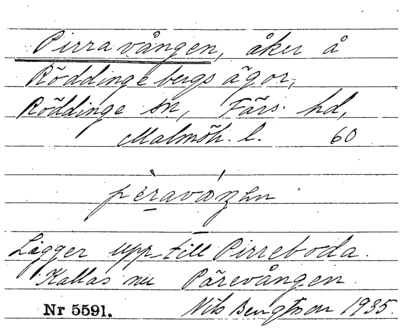 Pirravången, åker å
Röddinge bergs ägor,
Röddinge sn, Färs hd,
Malmöh. l. 60
Ligger upp till Pirreboda.
Kallas nu Pärevången.
Nr 5591. Nils Bengtson 1935.